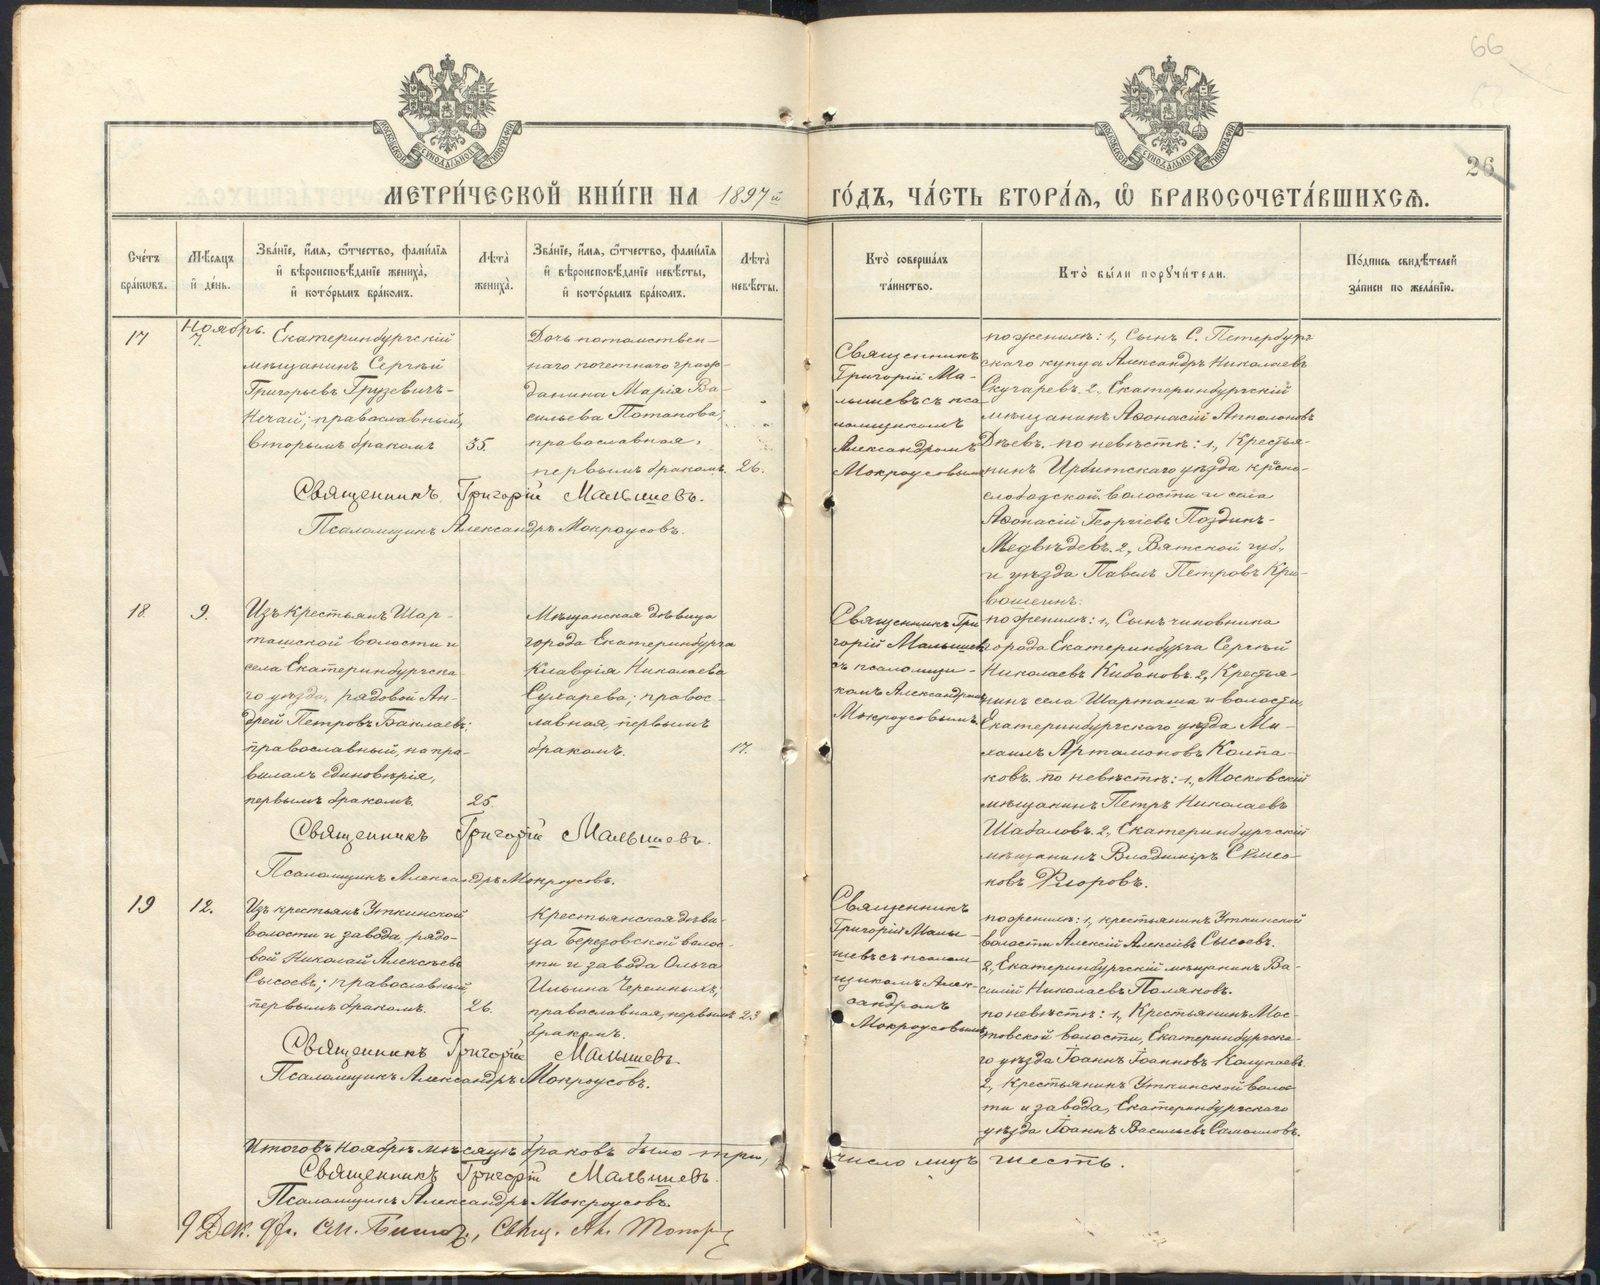 66
26
МОСКОВСКОЙ СѴНОДАЛЬНОЙ ТИПОГРАФІИ
МОСКОВСКОЙ СѴНОДАЛЬНОЙ ТИПОГРАФІИ
МЕТРИ́ЧЕСКОЙ КНИ́ГИ НА 1897й ГО́ДЪ, ЧА́СТЬ ВТОРА́Я, Ѽ БРАКОСОЧЕТА́ВШИХСѦ.
Сче́тъ бра́кѡвъ.
Мѣ́сяцъ и҆ де́нь.
Зва́нїе, и҆́мя, ѻ҆́тчество, фами́лїя
и҆ вѣроисповѣ́данїе жениха̀,
и҆ кото́рымъ бра́комъ.
Лѣ́та жениха̀.
Зва́нїе, и҆́мя, ѻ҆́тчество, фами́лїя
и҆ вѣроисповѣ́данїе невѣ́сты,
и҆ кото́рымъ бра́комъ.
Лѣ́та невѣ́сты.
Кто̀ соверша́лъ та́инство.
Кто̀ бы́ли порꙋчи́тели.
По́дпись свидѣ́телей за́писи по жела́нїю.
17
Ноябрь.
7.
Екатеринбургскій
мѣщанинъ Сергѣй
Григорьевъ Грузевичъ-
Нечай; православный,
вторымъ бракомъ
35.
Дочь потомствен-
наго почетнаго граж-
данина Марія Ва-
сильева Потапова;
православная,
первымъ бракомъ.
26.
Священникъ
Григорій Ма-
лышевъ съ пса-
ломщикомъ
Александромъ
Мокроусовымъ
по женихѣ: 1, Сынъ С. Петербург-
скаго купца Александръ Николаевъ
Скучаревъ. 2, Екатеринбургскій
мѣщанинъ Аѳонасій Апполоновъ
Дѣевъ. по невѣстѣ: 1, Крестья-
нинъ Ирбитскаго уѣзда красно-
слободской волости и села
Аѳонасій Георгіевъ Поздинъ-
Медвѣдевъ. 2, Вятской губ.
и уѣзда Павелъ Петровъ Кри-
вошеинъ.
Священникъ Григорій Малышевъ.
Псаломщикъ Александръ Мокроусовъ.
18.
9.
Изъ крестьянъ Шар-
ташской волости и
села Екатеринбургска-
го уѣзда, рядовой Ан-
дрей Петровъ Баклаевъ;
православный, по пра-
виламъ единовѣрія,
первымъ бракомъ.
25.
Мѣщанская дѣвица
города Екатеринбурга
Клавдія Николаева
Сухарева; правос-
лавная, первымъ
бракомъ.
17.
Священникъ Гри-
горій Малышевъ
съ псаломщи-
комъ Александромъ
Мокроусовымъ.
по женихѣ: 1, Сынъ чиновника
города Екатеринбурга Сергѣй
Николаевъ Кибановъ. 2, Крестья-
нинъ села Шарташа и волости,
Екатеринбургскаго уѣзда Ми-
хаилъ Артамоновъ Колпа-
ковъ. по невѣстѣ: 1, Московскій
мѣщанинъ Петръ Николаевъ
Шабаловъ. 2, Екатеринбургскій
мѣщанинъ Владиміръ
Флоровъ.
Священникъ Григорій Малышевъ.
Псаломщикъ Александръ Мокроусовъ.
19
12.
Изъ крестьянъ Уткинской
волости и завода, рядо-
вой Николай Алексѣевъ
Сысоевъ; православный,
первымъ бракомъ.
26.
Крестьянская дѣви-
ца Березовской волос-
ти и завода Ольга
Ильина Черемныхъ,
православная, первымъ
бракомъ.
23
Священникъ
Григорій Малы-
шевъ съ псалом-
щикомъ Алек-
сандромъ
Мокроусовымъ
по женихѣ: 1, крестьянинъ Уткинской
волости Алексій Алексіевъ Сысоевъ.
2, Екатеринбургскій мѣщанинъ Ва-
силій Николаевъ Поляковъ.
по невѣстѣ: 1, Крестьянинъ Мос-
товской волости, Екатеринбургска-
го уѣзда Іоаннъ Іоанновъ Калугаевъ.
2, крестьянинъ Уткинской волос-
ти и завода, Екатеринбургскаго
уѣзда Іоаннъ Васильевъ Самоиловъ.
Священникъ Григорій Малышевъ.
Псаломщикъ Александръ Мокроусовъ.
Итого въ Ноябрѣ мѣсяцѣ браковъ было три, число лицъ шесть.
Священникъ Григорій Малышевъ.
Псаломщикъ Александръ Мокроусовъ.
9 Дек. 97 г.